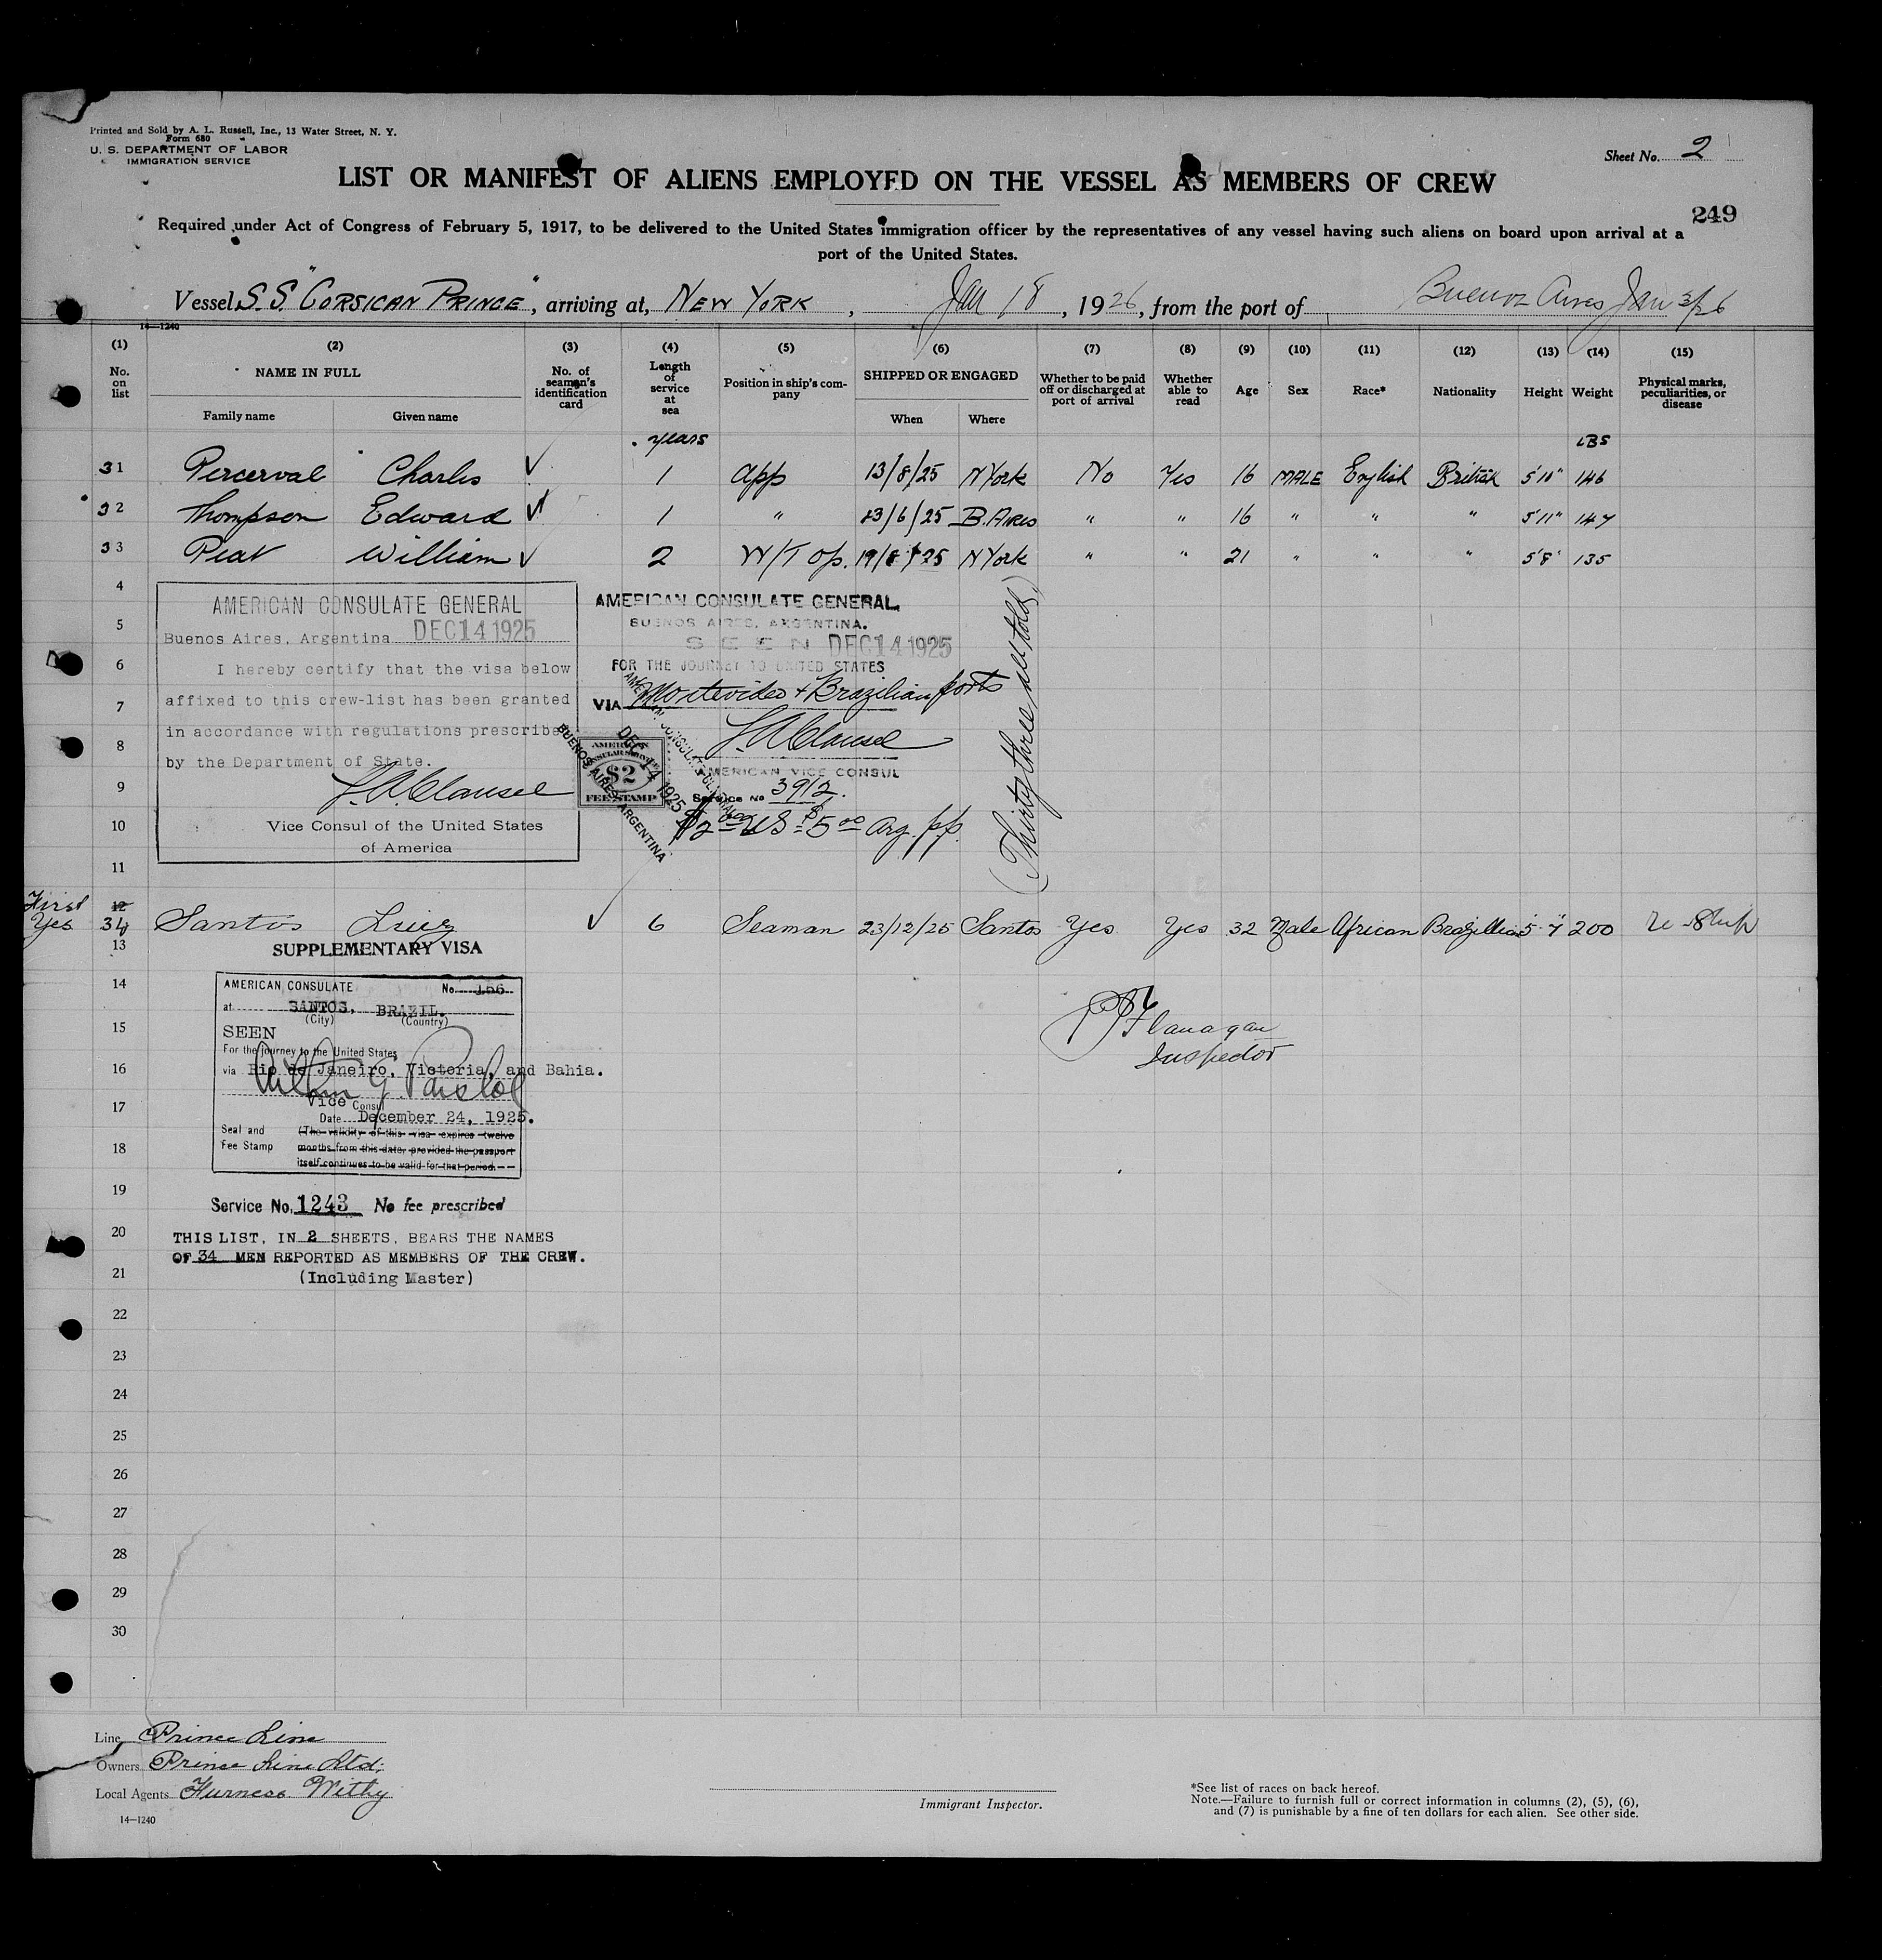 Printed and Sold by A. L. Russell, Inc., 13 Water Street, N. Y.
Form 680
U. S. DEPARTMENT OF LABOR
IMMIGRATION SERVICE
Sheet No. 2
LIST OR MANIFEST OF ALIENS EMPLOYED ON THE VESSEL AS MEMBERS OF CREW
249
Required under Act of Congress of February 5, 1917, to be delivered to the United States immigration officer by the representatives of any vessel having such aliens on board upon arrival at a
port of the United States.
Vessel S.S. "CORSICAN PRINCE", arriving at, NEW YORK, Jan 18, 1926, from the port of Buenos Aires Jan 3/26
14—1240
(1) (2) (3) (4) (5) (6) (7) (8) (9) (10) (11) (12) (13) (14) (15)
No. on list NAME IN FULL No. of seaman's identification card Length of service at sea Position in ship's company SHIPPED OR ENGAGED Whether to be paid off or discharged at port of arrival Whether able to read Age Sex Race* Nationality Height Weight Physical marks, peculiarities, or disease
Family name Given name When Where
years LBS
31 Percerval Charles ✓ 1 App 13/8/25 N York No Yes 16 MALE English British 5'10" 146
32 Thompson Edward ✓ 1 " 23/6/25 B. Aires " " 16 " " " 5'11" 147
33 Peat William ✓ 2 W/T Op. 19/8/25 N York " " 21 " " " 5'8" 135
4
5
6
7
8
9
10
11
AMERICAN CONSULATE GENERAL
Buenos Aires, Argentina DEC 14 1925
I hereby certify that the visa below
affixed to this crew-list has been granted
in accordance with regulations prescribed
by the Department of State.
Vice Consul of the United States
of America
AMERICAN CONSULATE GENERAL,
BUENOS AIRES, ARGENTINA.
SEEN DEC 14 1925
FOR THE JOURNEY TO UNITED STATES
VIA Montevideo & Brazilian ports
AMERICAN VICE CONSUL
Service No 3912.
$2.00 US = $5.00 Arg. pp.
AMERICAN CONSULAR SERVICE
$2
FEE STAMP
DEC 14 1925
BUENOS AIRES, ARGENTINA
(Thirty three all told)
First
Yes 12 34 Santos Luiz ✓ 6 Seaman 23/12/25 Santos Yes Yes 32 Male African Brazillian 5-7" 200 Re-Ship
13
SUPPLEMENTARY VISA
14
AMERICAN CONSULATE No. 156
at SANTOS, BRAZIL.
(City) (Country)
15
SEEN
For the journey to the United States
16
via Rio de Janeiro, Victoria, and Bahia.
17
Vice Consul
Date December 24, 1925.
Seal and Fee Stamp
(The validity of this visa expires twelve
18
months from this date, provided the passport
itself continues to be valid for that period.
Flanagan
Inspector
19
Service No. 1243 No fee prescribed
20
THIS LIST, IN 2 SHEETS, BEARS THE NAMES
OF 34 MEN REPORTED AS MEMBERS OF THE CREW.
21
(Including Master)
22
23
24
25
26
27
28
29
30
Line Prince Line
Owners Prince Line Ltd.
Local Agents Furness Withy
14—1240
Immigrant Inspector.
*See list of races on back hereof.
Note.—Failure to furnish full or correct information in columns (2), (5), (6),
and (7) is punishable by a fine of ten dollars for each alien. See other side.